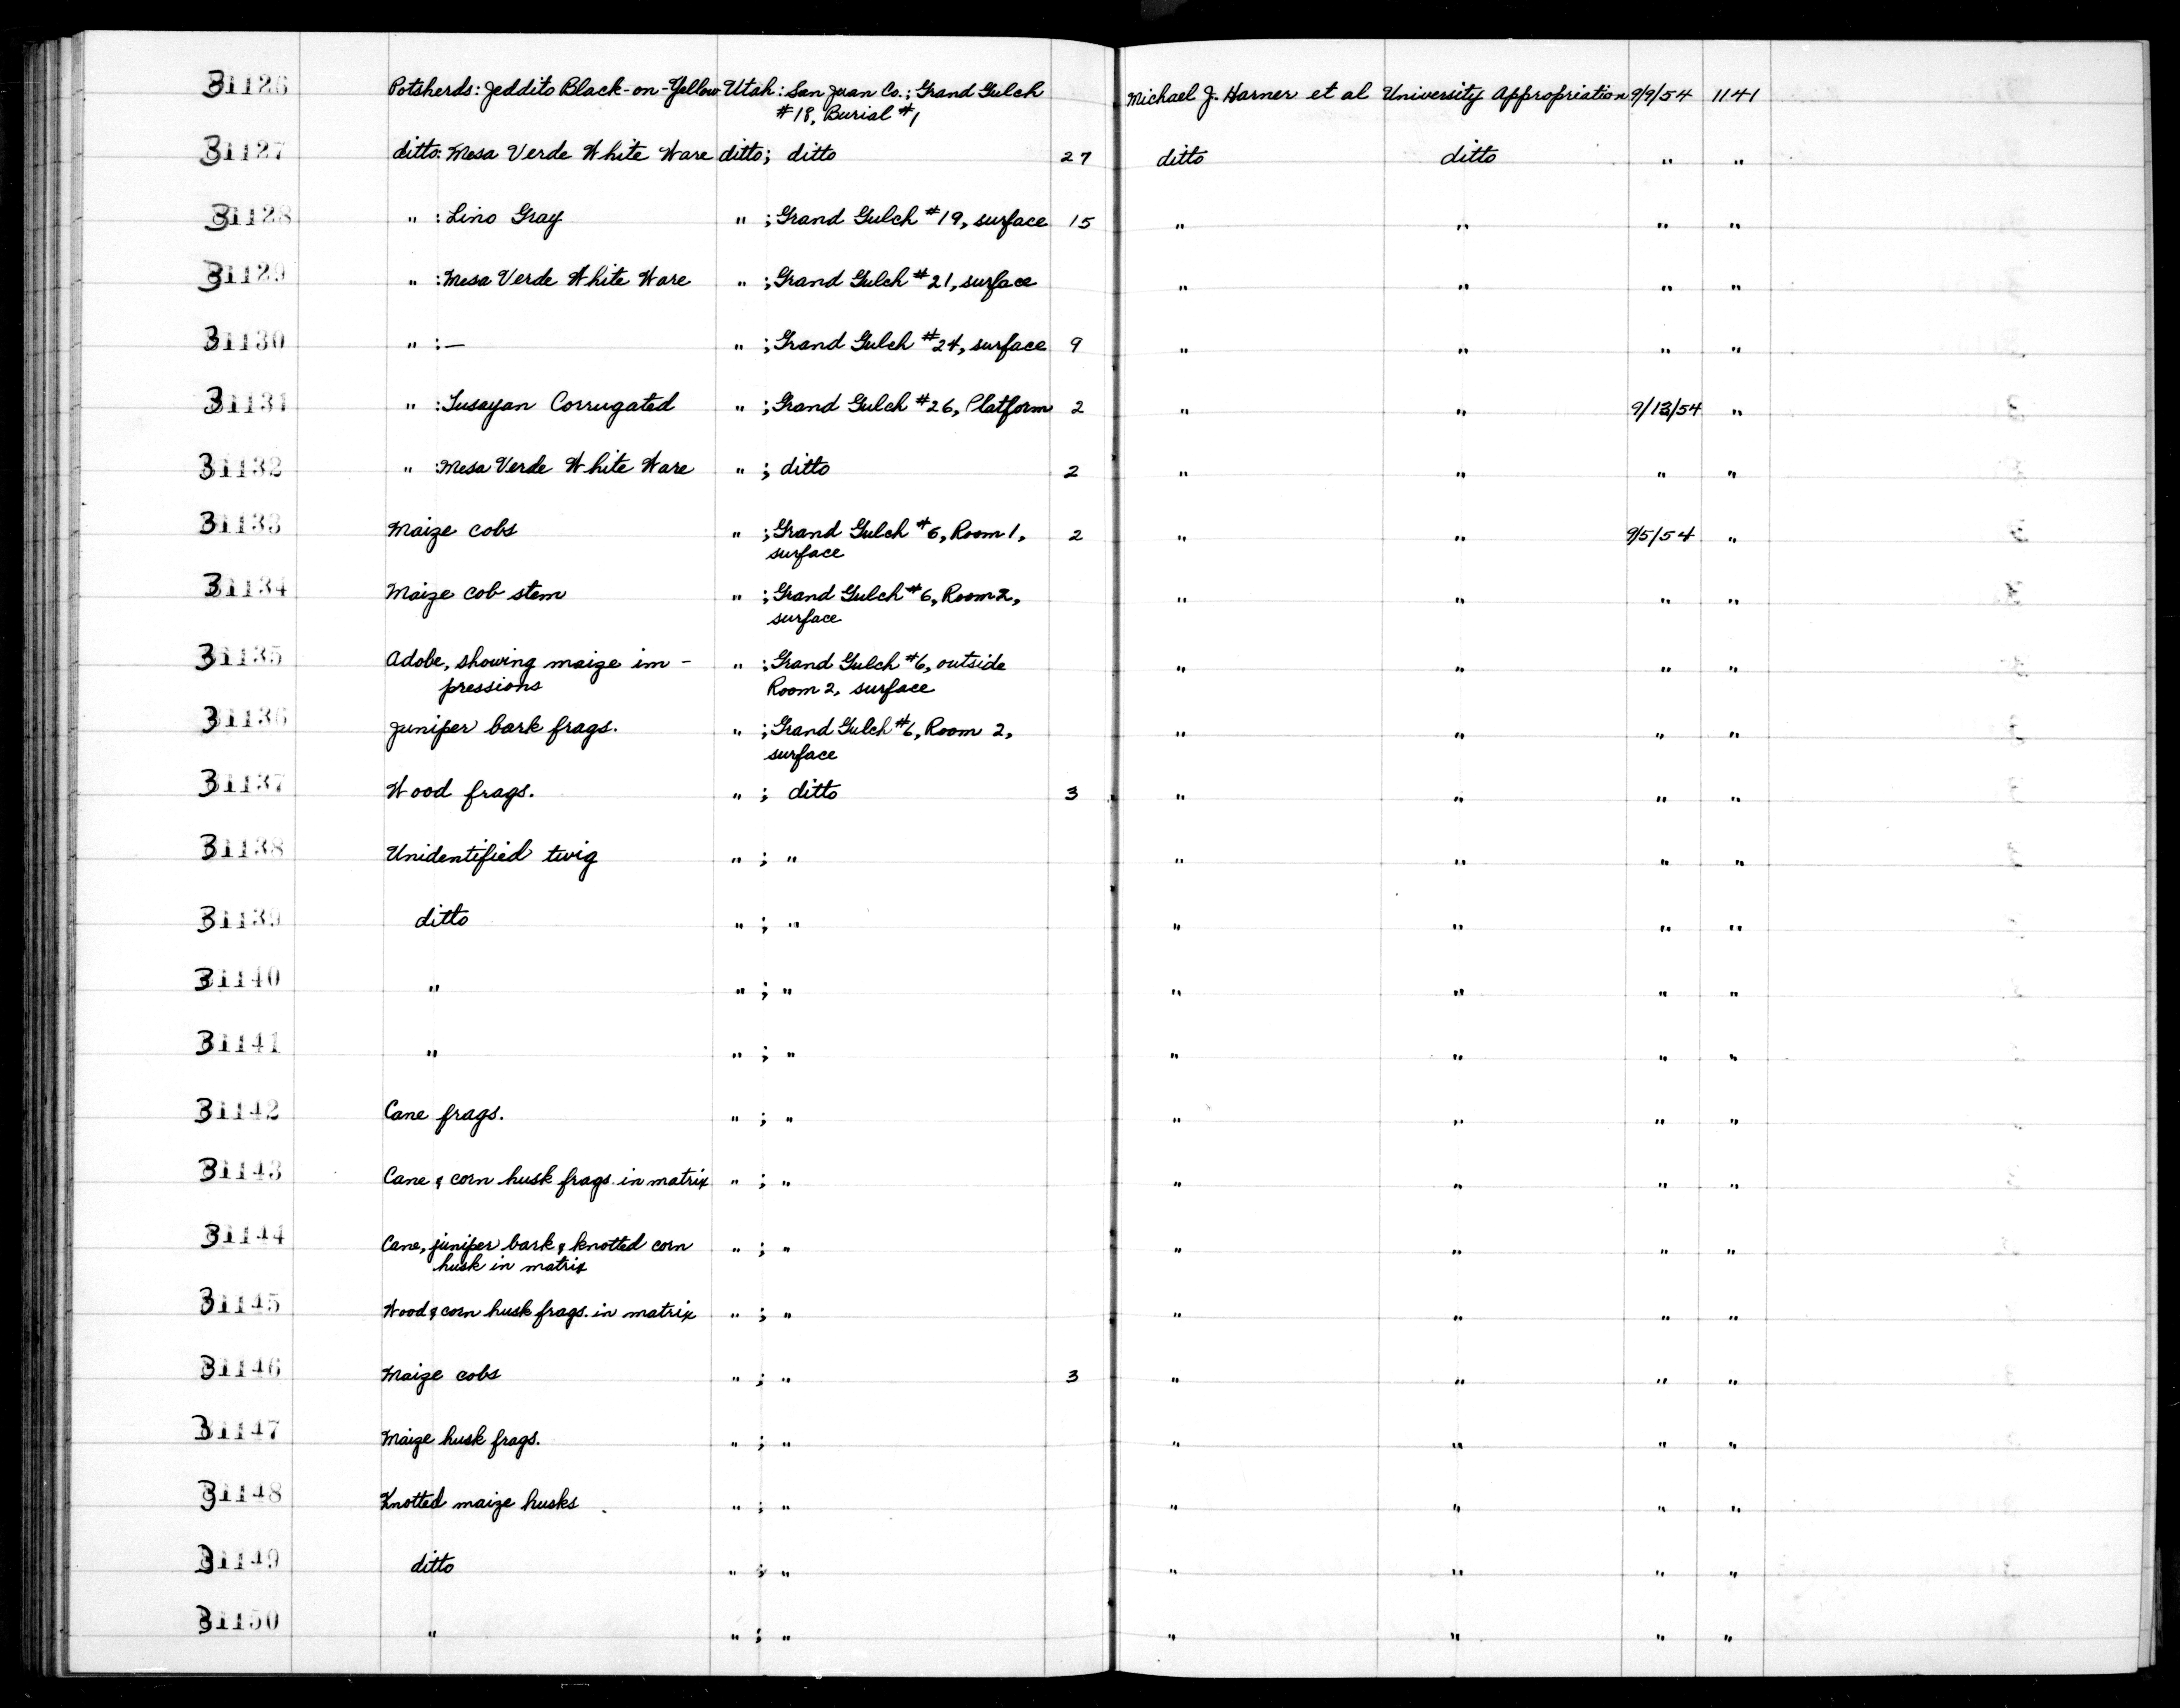 31126 Potsherds: Jeddito Black-on-Yellow Utah: San Juan Co.; Grand Gulch Michael J. Harner et al University Appropriation 9/9/54 1141
#18, Burial #1
31127 ditto: Mesa Verde White Ware ditto; ditto 27 ditto ditto " "
31128 " : Lino Gray " ; Grand Gulch #19, surface 15 " " " "
31129 " : Mesa Verde White Ware " ; Grand Gulch #21, surface " " " "
31130 " : — " ; Grand Gulch #24, surface 9 " " " "
31131 " : Tusayan Corrugated " ; Grand Gulch #26, Platform 2 " " 9/13/54 "
31132 " : Mesa Verde White Ware " ; ditto 2 " " " "
31133 Maize cobs " ; Grand Gulch #6, Room 1, 2 " " 9/5/54 "
surface
31134 Maize cob stem " ; Grand Gulch #6, Room 2, " " " "
surface
31135 Adobe, showing maize im- " ; Grand Gulch #6, outside " " " "
pressions Room 2, surface
31136 Juniper bark frags. " ; Grand Gulch #6, Room 2, " " " "
surface
31137 Wood frags. " ; ditto 3 " " " "
31138 Unidentified twig " ; " " " " "
31139 ditto " ; " " " " "
31140 " " ; " " " " "
31141 " " ; " " " " "
31142 Cane frags. " ; " " " " "
31143 Cane & corn husk frags. in matrix " ; " " " " "
31144 Cane, juniper bark & knotted corn " ; " " " " "
husk in matrix
31145 Wood & corn husk frags. in matrix " ; " " " " "
31146 Maize cobs " ; " 3 " " " "
31147 Maize husk frags. " ; " " " " "
31148 Knotted maize husks " ; " " " " "
31149 ditto " ; " " " " "
31150 " " ; " " " " "